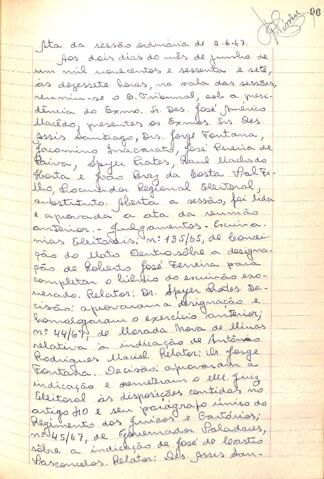 96
Ata da sessão ordinária de 2-6-67.
Aos dois dias do mês de junho de
um mil novecentos e sessenta e sete,
às dezessete horas, na sala das sessões,
reuniu-se o E. Tribunal, sob a presi-
dência do Exmo. Sr. Des. José Américo
Macêdo, presentes os Exmos. Srs. Des.
Assis Santiago, Drs. Jorge Fontana,
Jacomino Inacarato, José Pereira de
Paiva, Spyer Prates, Raul Machado
Horta e João Braz da Costa Val Fi-
lho, Procurador Regional Eleitoral,
substituto. Aberta a sessão, foi lida
e aprovada a ata da reunião
anterior. - Julgamentos - Escriva-
nias Eleitorais: nº 135/65, de Concei-
ção do Mato Dentro sôbre a designa-
ção de Roberto José Ferreira para
completar o biênio do escrivão exo-
nerado. Relator: Dr. Spyer Prates De-
cisão: aprovaram a designação e
homologaram o exercício anterior;
nº 44/67, de Morada Nova de Minas
relativa à indicação de Antônio
Rodrigues Maciel Relator: Dr. Jorge
Fontana. Decisão: aprovaram a
indicação e remeteram o MM. Juiz
Eleitoral às disposições contidas no
artigo 40 e seu parágrafo único do
Regimento dos Juízos e Cartórios;
nº 45/67, de Governador Valadares,
sôbre a indicação de José de Castro
Vasconcelos. Relator: Des. Assis San-